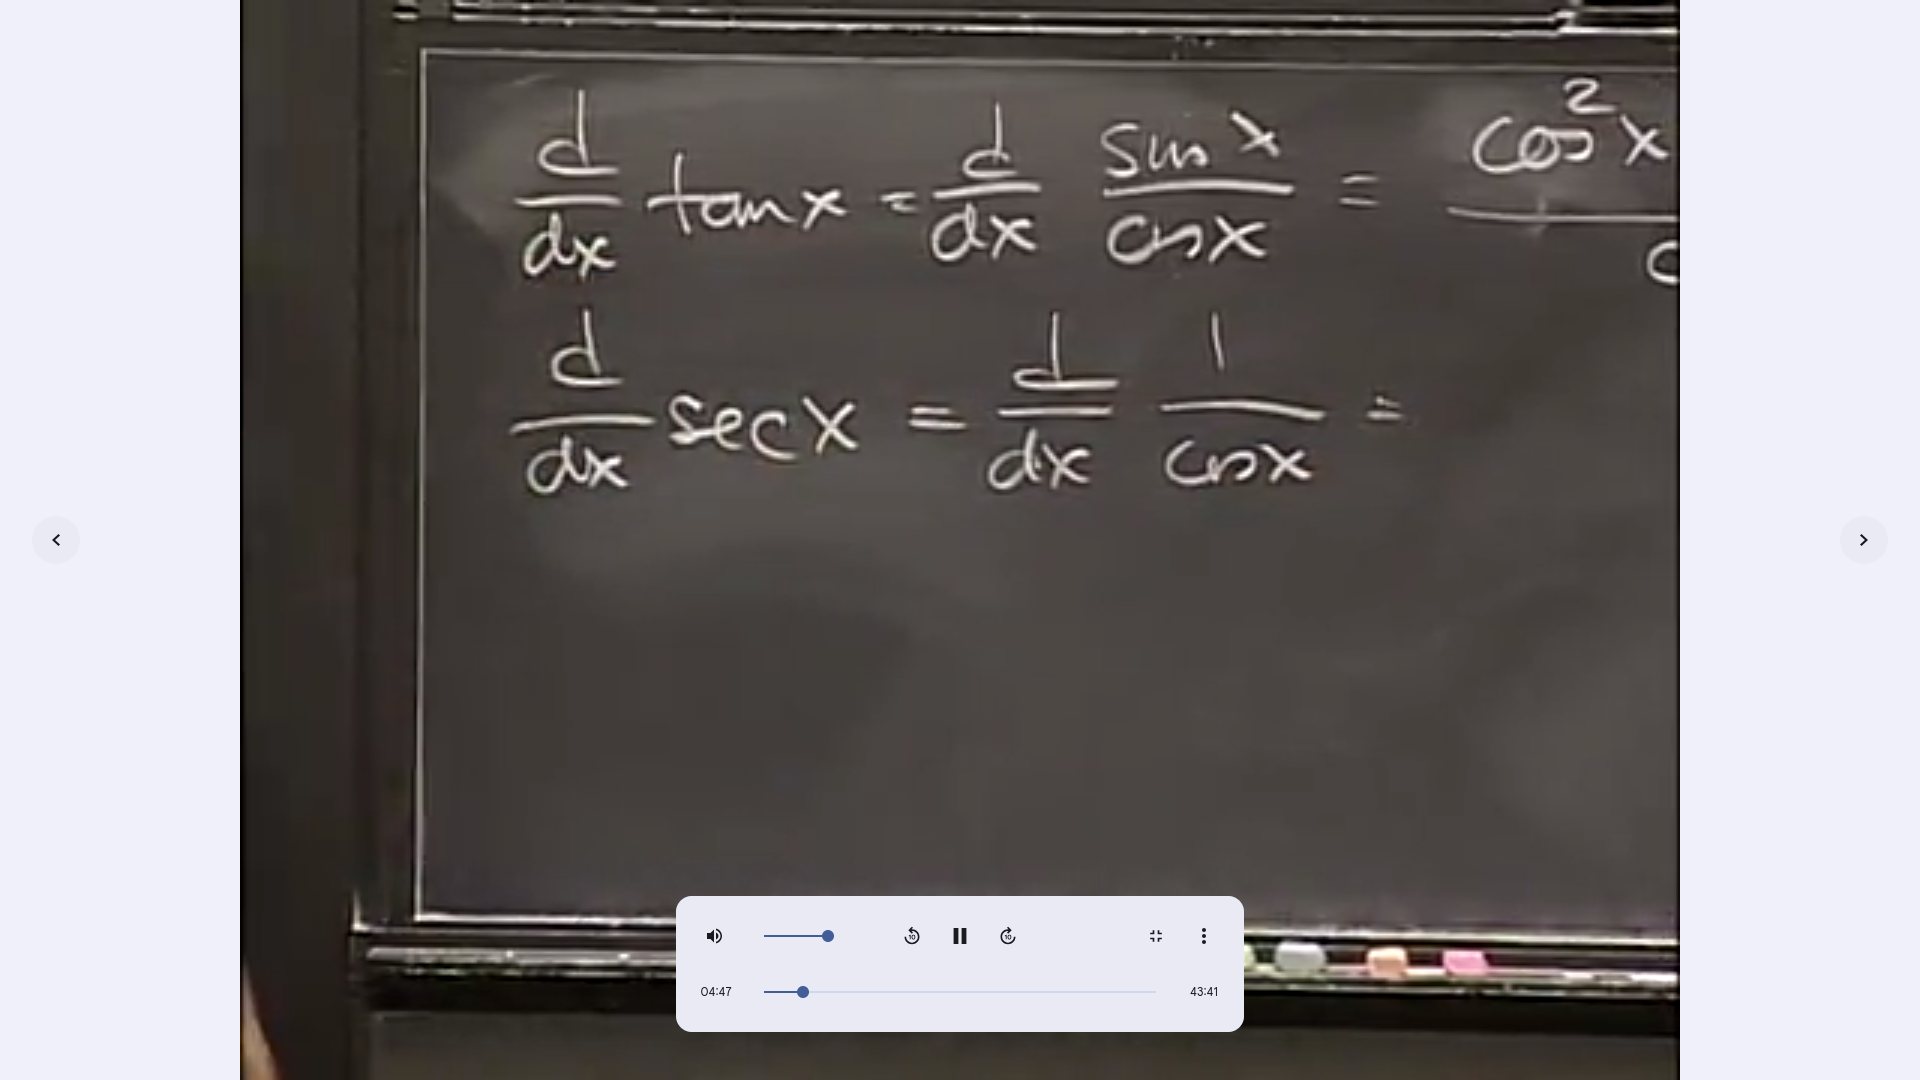 d/dx tan x = d/dx sin x/cos x = cos²x
d/dx sec x = d/dx 1/cos x =
10
10
04:47
43:41